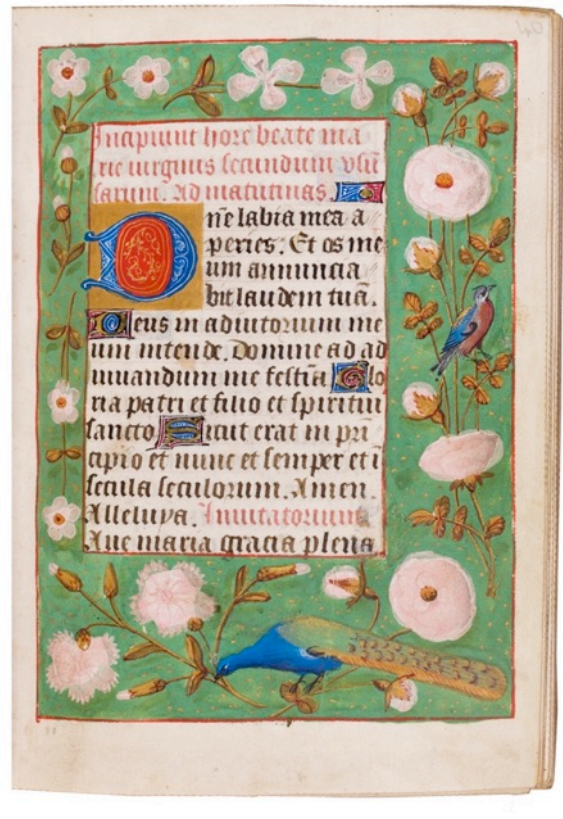 Incipiunt hore beate ma
rie virginis secundum usū
sarum. Ad matutinas
Dn̄e labia mea a
peries. Et os me
um annuncia
bit laudem tuā.
Deus in adiutorium me
um intende. Domine ad ad
iuuandum me festīa Glo
ria patri et filio et spiritui
sancto Sicut erat in pri
cipio et nunc et semper et ī
secula seculorum. Amen.
Alleluya. Inuitatorium
Aue maria gracia plena